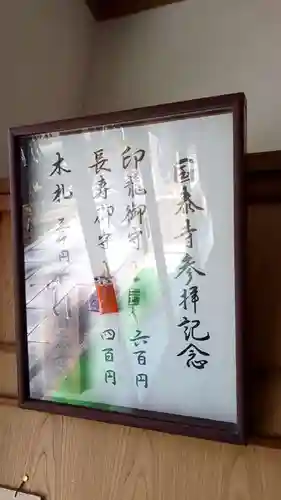 国泰寺参拝記念
印龍御守 六百円
長寿御守 四百円
木札